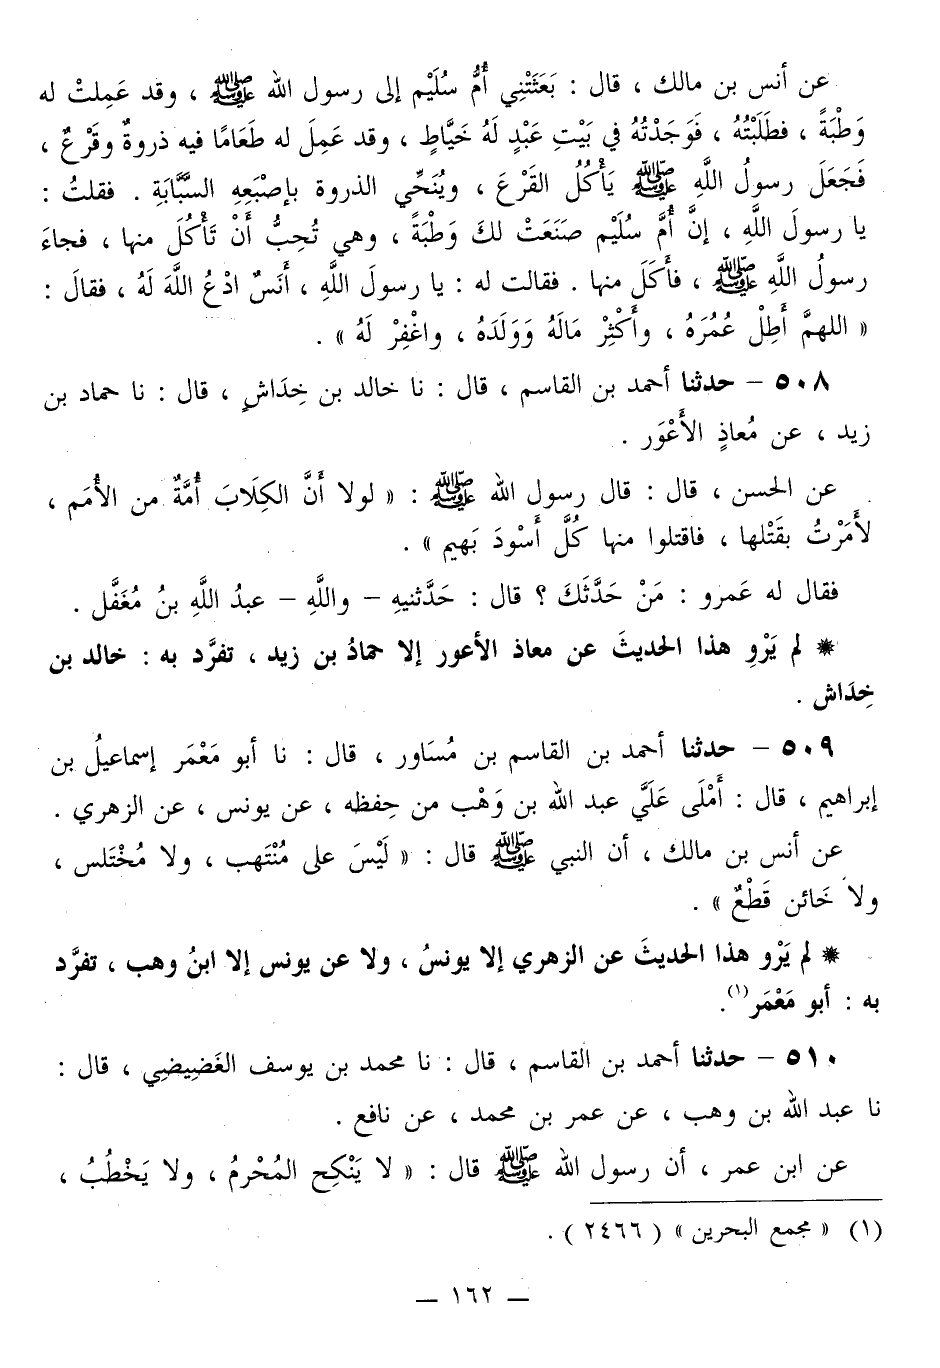 عن أنس بن مالك ، قال : بَعَثَتْنِي أُمُّ سُلَيْم إلى رسول الله ﷺ ، وقد عَمِلتْ له
وَطْبَةً ، فطَلَبْتُهُ ، فَوَجَدْتُهُ في بَيْتِ عَبْدٍ لَهُ خَيَّاطٍ ، وقد عَمِلَ له طَعَامًا فيه ذروةٌ وقَرْعٌ ،
فَجَعَلَ رسولُ اللَّهِ ﷺ يَأْكُلُ القَرْعَ ، ويُنَحِّي الذروة بإصْبَعِهِ السَّبَّابَةِ . فقلتُ :
يا رسولَ اللَّهِ ، إنَّ أُمَّ سُلَيْم صَنَعَتْ لكَ وَطْبَةً ، وهي تُحِبُّ أَنْ تَأْكُلَ منها ، فجاءَ
رسولُ اللَّهِ ﷺ ، فأَكَلَ منها . فقالت له : يا رسولَ اللَّهِ ، أَنَسٌ ادْعُ اللَّهَ لَهُ ، فقالَ :
« اللهمَّ أَطِلْ عُمُرَهُ ، وأَكْثِرْ مَالَهُ وَوَلَدَهُ ، واغْفِرْ لَهُ » .
٥٠٨ – حدثنا أحمد بن القاسم ، قال : نا خالد بن خِدَاشٍ ، قال : نا حماد بن
زيد ، عن مُعاذٍ الأَعْوَر .
عن الحسن ، قال : قال رسول الله ﷺ : « لولا أنَّ الكِلَابَ أُمَّةٌ من الأُمَم ،
لأَمَرْتُ بقَتْلها ، فاقتلوا منها كُلَّ أَسْودَ بَهيم » .
فقال له عَمرو : مَنْ حَدَّثَكَ ؟ قال : حَدَّثنيهِ – واللَّهِ – عبدُ اللَّهِ بنُ مُغَفَّل .
* لم يَرْوِ هذا الحديثَ عن معاذ الأعور إلا حمادُ بن زيد ، تفرَّد به : خالد بن
خِدَاش .
٥٠٩ – حدثنا أحمد بن القاسم بن مُسَاور ، قال : نا أبو مَعْمَر إسماعيلُ بن
إبراهيم ، قال : أَمْلَى عَلَيَّ عبد الله بن وَهْب من حِفظه ، عن يونس ، عن الزهري .
عن أنس بن مالك ، أن النبي ﷺ قال : « لَيْسَ على مُنْتَهب ، ولا مُخْتَلس ،
ولا خَائن قَطْعٌ » .
* لم يَرْو هذا الحديثَ عن الزهري إلا يونسُ ، ولا عن يونس إلا ابنُ وهب ، تفرَّد
به : أبو مَعْمَر(١).
٥١٠ – حدثنا أحمد بن القاسم ، قال : نا محمد بن يوسف الغَضِيضِي ، قال :
نا عبد الله بن وهب ، عن عمر بن محمد ، عن نافع .
عن ابن عمر ، أن رسول الله ﷺ قال : « لا يَنْكِح المُحْرمُ ، ولا يَخْطُبُ ،
(١) « مجمع البحرين » ( ٢٤٦٦ ) .
— ١٦٢ —